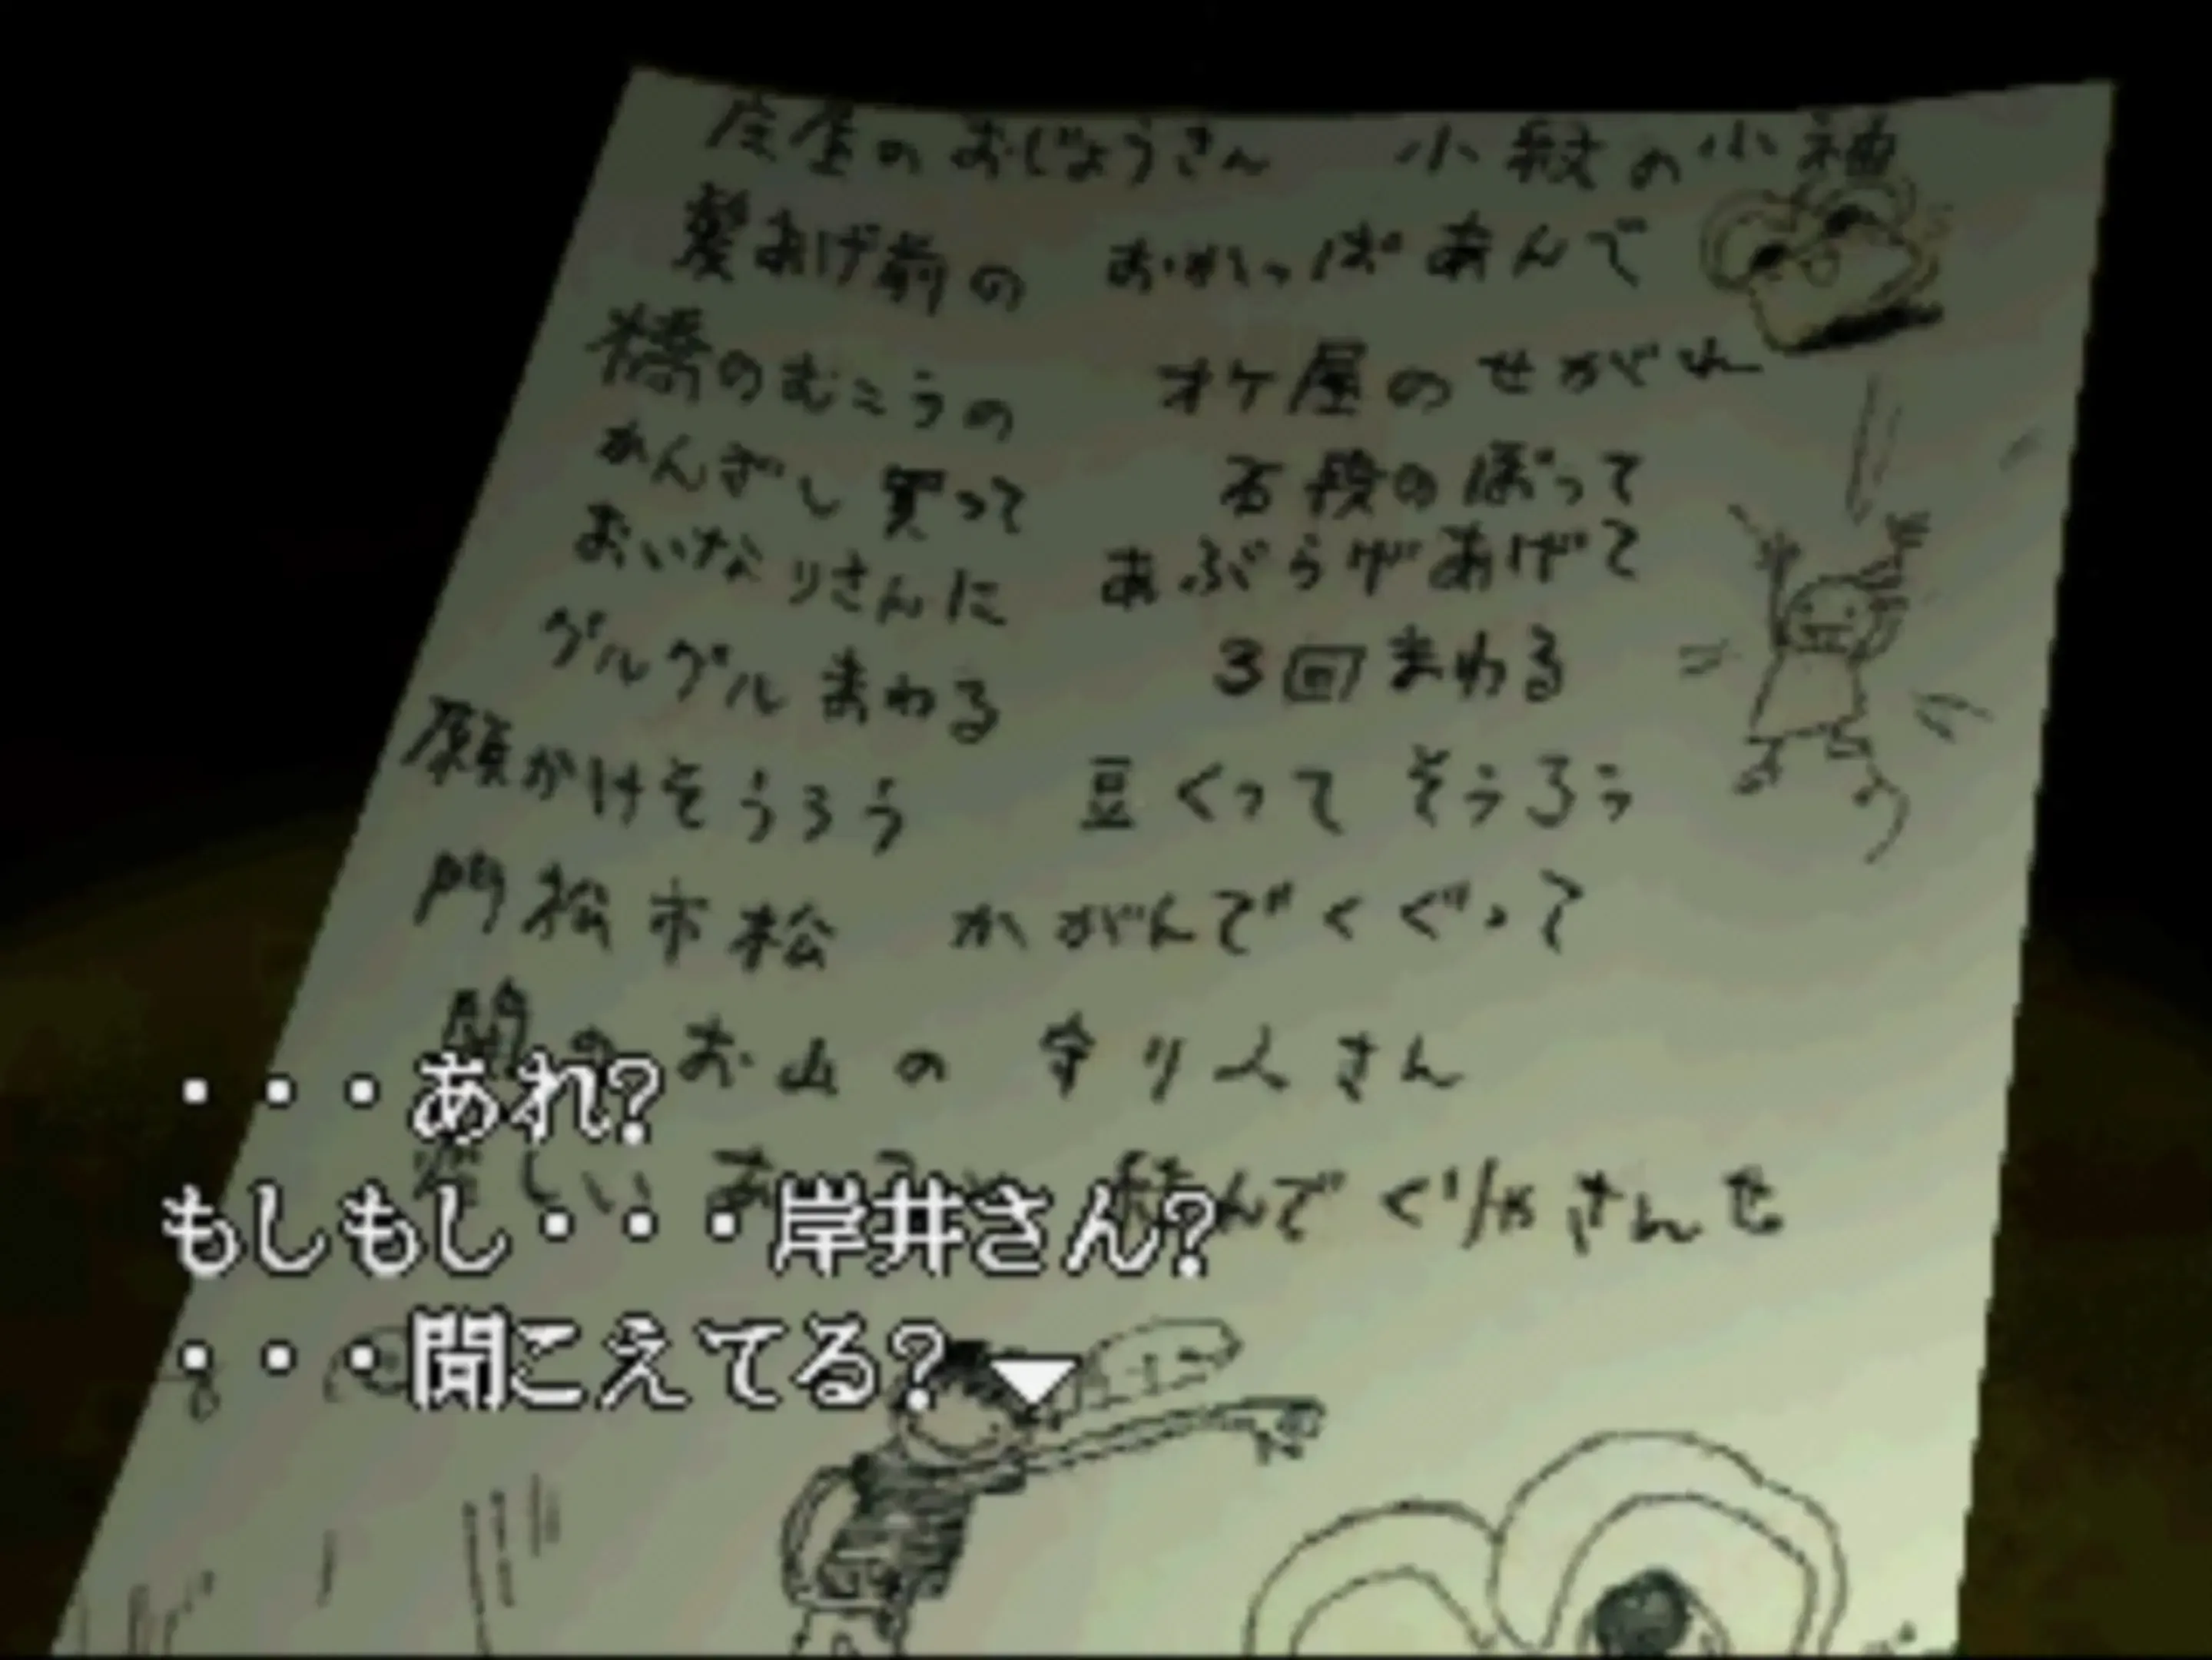 屋のおじょうさん 小紋の小袖
髪あげ前の おかっぱあんで
橋のむこうの オケ屋のせがれ
かんざし買って 石段のぼって
おいなりさんに あぶらげあげて
グルグルまわる 3回まわる
願かけそうろう 豆くってそうろう
門松市松 かがんでくぐって
のお山の 守り人さん
しい んでくりゃさんせ
・・・あれ?
もしもし・・・岸井さん?
・・・聞こえてる?